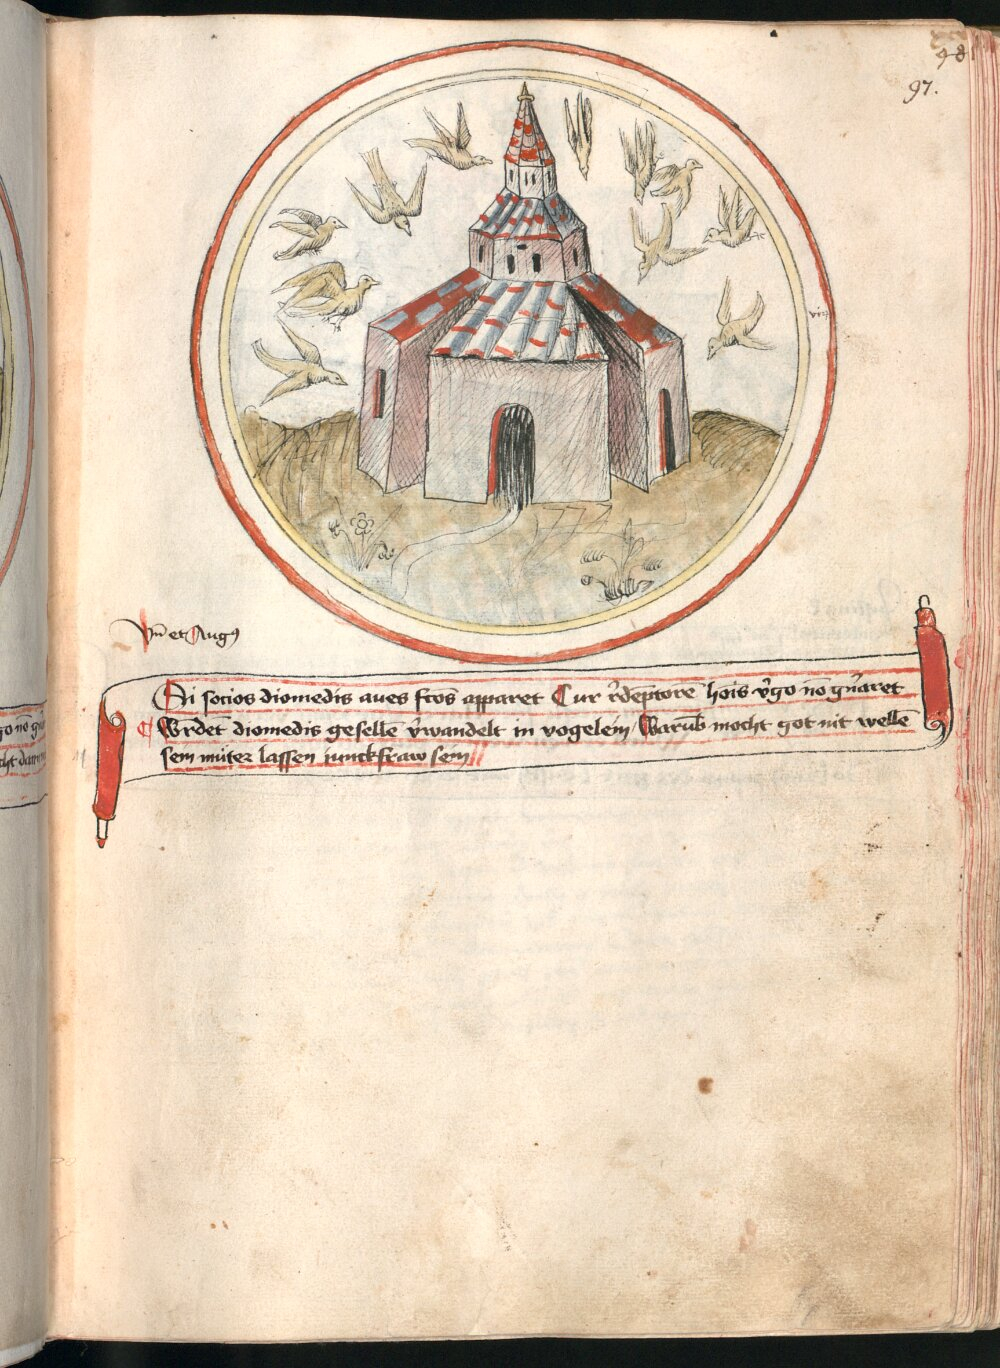 98
97.
Vñ et Augꝰ
Si socios diomedis aues fctos apparet Cur r̃deptorē hoĩs v̾go nō gñaret
Wrdet diomedis gesellē v̾wandelt in vogelein Warūb mocht got nit wellē
sein muter lassen junckfraw sein